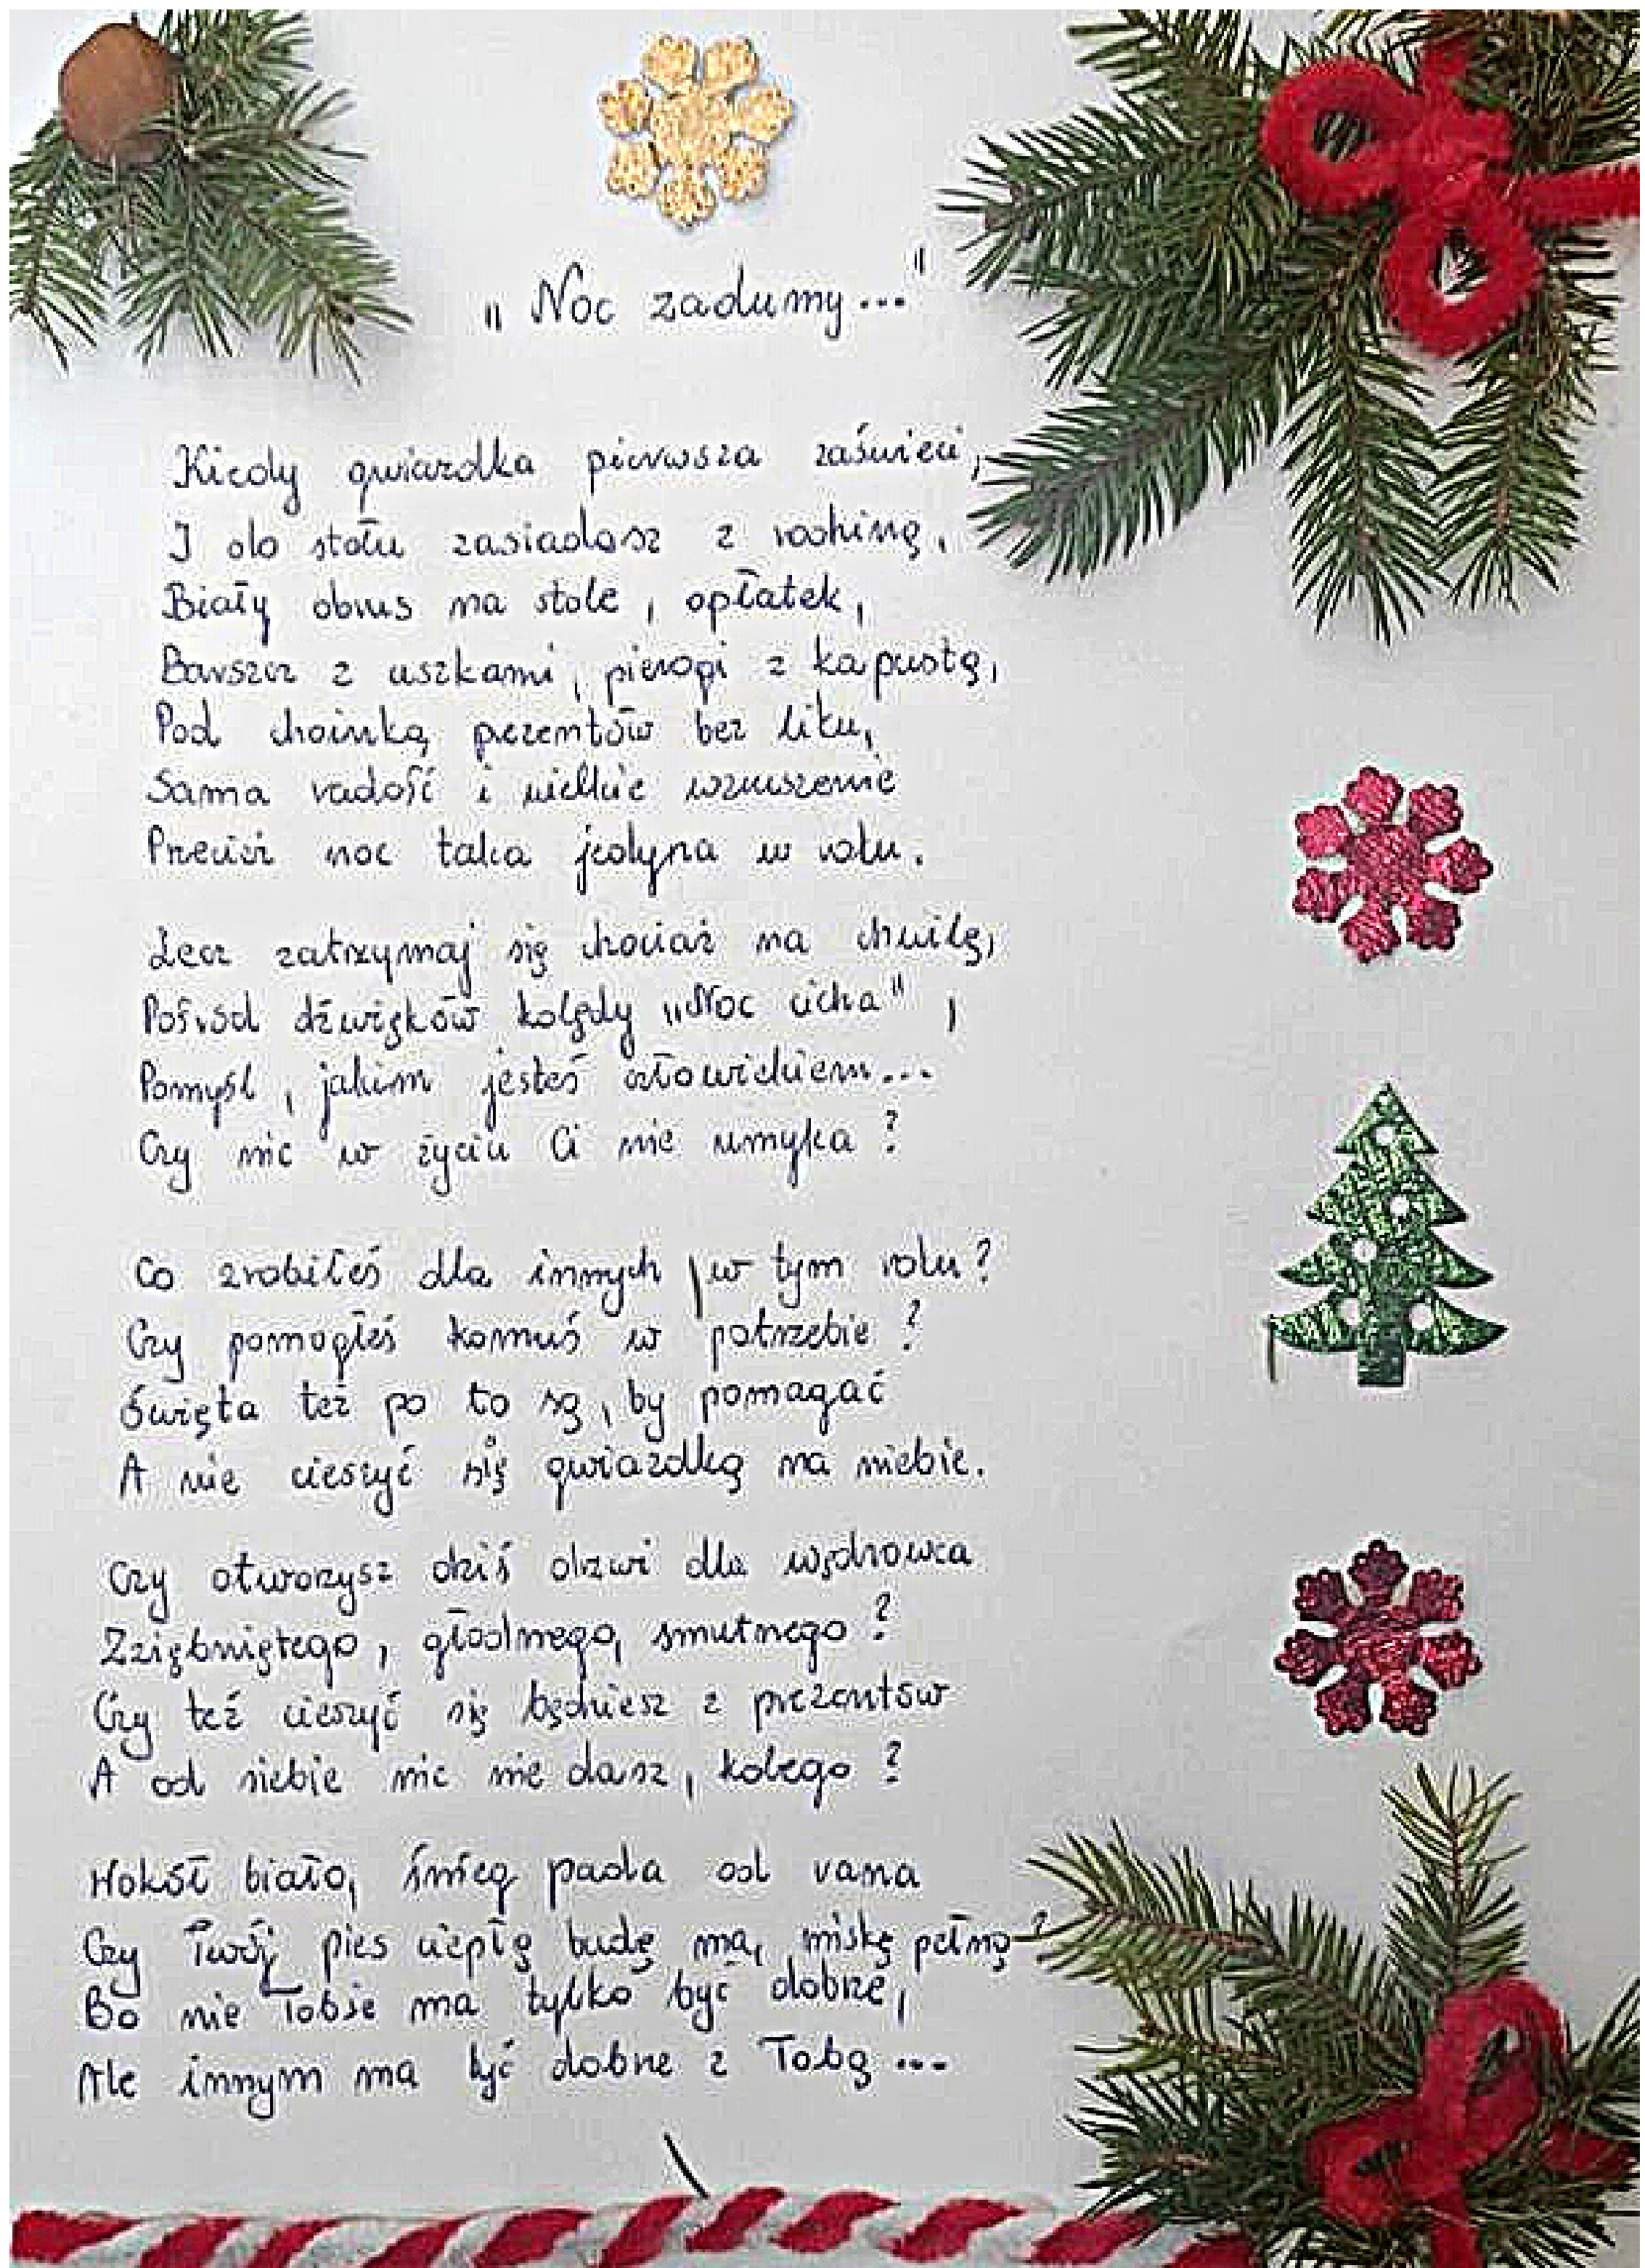 „Noc zadumy..."
Kiedy gwiazdka pierwsza zaświeci,
I do stołu zasiadasz z rodziną,
Biały obrus na stole, opłatek,
Barszcz z uszkami, pierogi z kapustą,
Pod choinką prezentów bez liku,
Sama radość i wielkie wzruszenie
Przecież noc taka jedyna w roku.
Lecz zatrzymaj się chociaż na chwilę,
Pośród dźwięków kolędy „Noc cicha",
Pomyśl, jakim jesteś człowiekiem...
Czy nic w życiu Ci nie umyka?
Co zrobiłeś dla innych w tym roku?
Czy pomogłeś komuś w potrzebie?
Święta też po to są, by pomagać
A nie cieszyć się gwiazdką na niebie.
Czy otworzysz dziś drzwi dla wędrowca
Zziębniętego, głodnego, smutnego?
Czy też cieszyć się będziesz z prezentów
A od siebie nic nie dasz, kolego?
Wokół biało, śnieg pada od rana
Czy Twój pies ciepłą budę ma, miskę pełną?
Bo nie Tobie ma tylko być dobrze,
Ale innym ma być dobrze z Tobą...